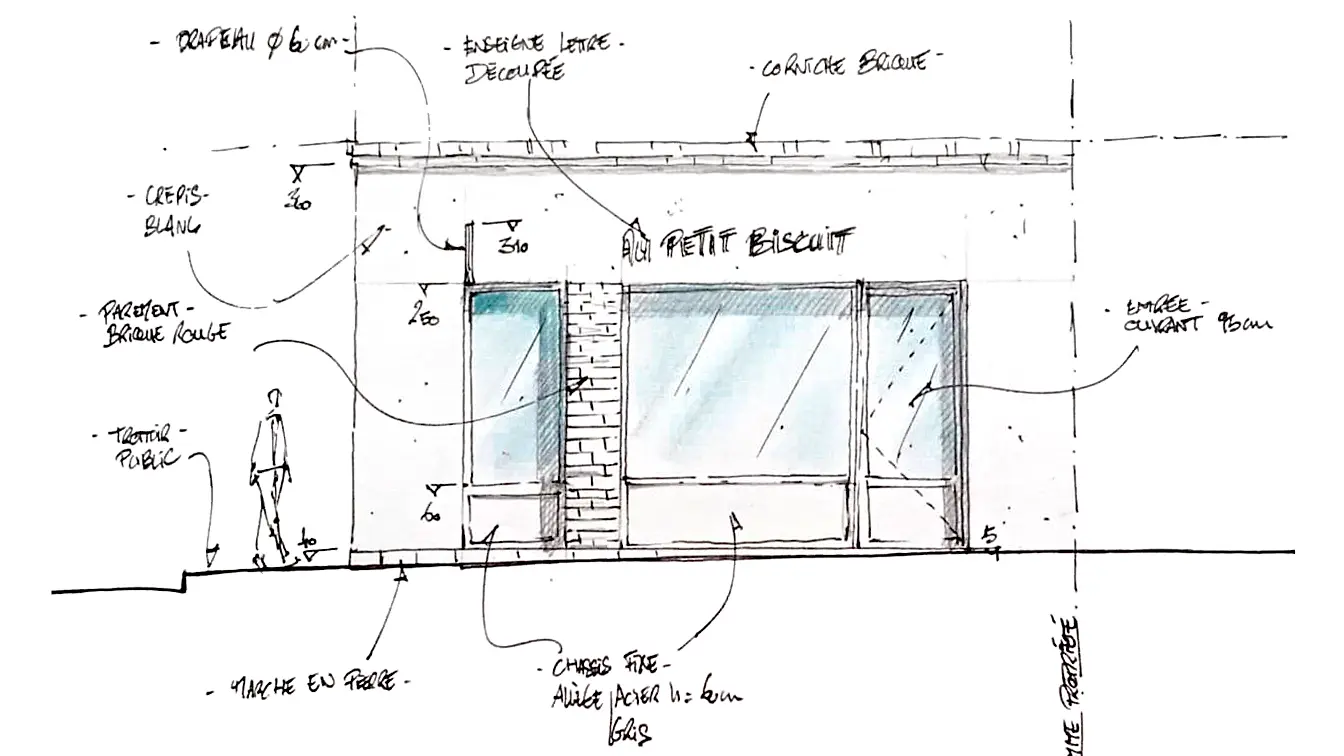 - DRAPEAU Ø 60 cm -
- ENSEIGNE LETTRE -
DÉCOUPÉE
- CORNICHE BRIQUE -
360
- CREPIS -
BLANC
310
AU PETIT BISCUIT
250
- PAREMENT -
BRIQUE ROUGE
- ENTRÉE -
OUVRANT 95 cm
- TROTTOIR -
PUBLIC
60
5
- MARCHE EN PIERRE -
- CHASSIS FIXE -
ALLÈGE ACIER H = 60 cm
GRIS
PROPRIÉTÉ